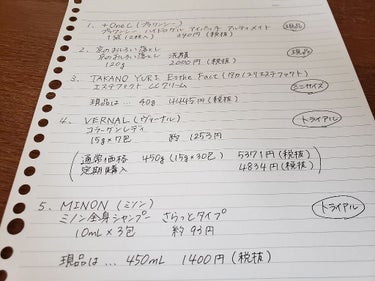 1. +OneC (プラワンシー) 現品
プラワンシー ハイドロゲル アイパッチ アルティメイト
1袋(2枚入) 340円(税抜)
2. 京のおしろい落とし 現品
京のおしろい落とし 洗顔
120g 2000円(税抜)
3. TAKANO YURI Esthe Fact (タカノユリエステファクト) ミニサイズ
エステファクト CCクリーム
現品は… 40g 4445円(税抜)
4. VERNAL (ヴァーナル) トライアル
コラーゲンレディ
15g×7包 約1253円
通常価格 450g(15g×30包) 5371円(税抜)
定期購入 4834円(税抜)
5. MINON (ミノン) トライアル
ミノン全身シャンプー さらっとタイプ
10mL×3包 約93円
現品は… 450mL 1400円(税抜)